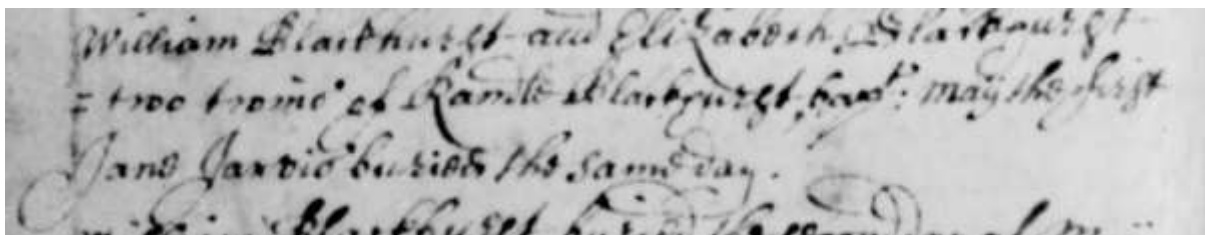 William Blackhurst and Elizabeth Blackhurst
= two twins of Randle Blackhurst, bapt: may the first
Jane Jarvis buried the same day.
Blackhurst buried the day of